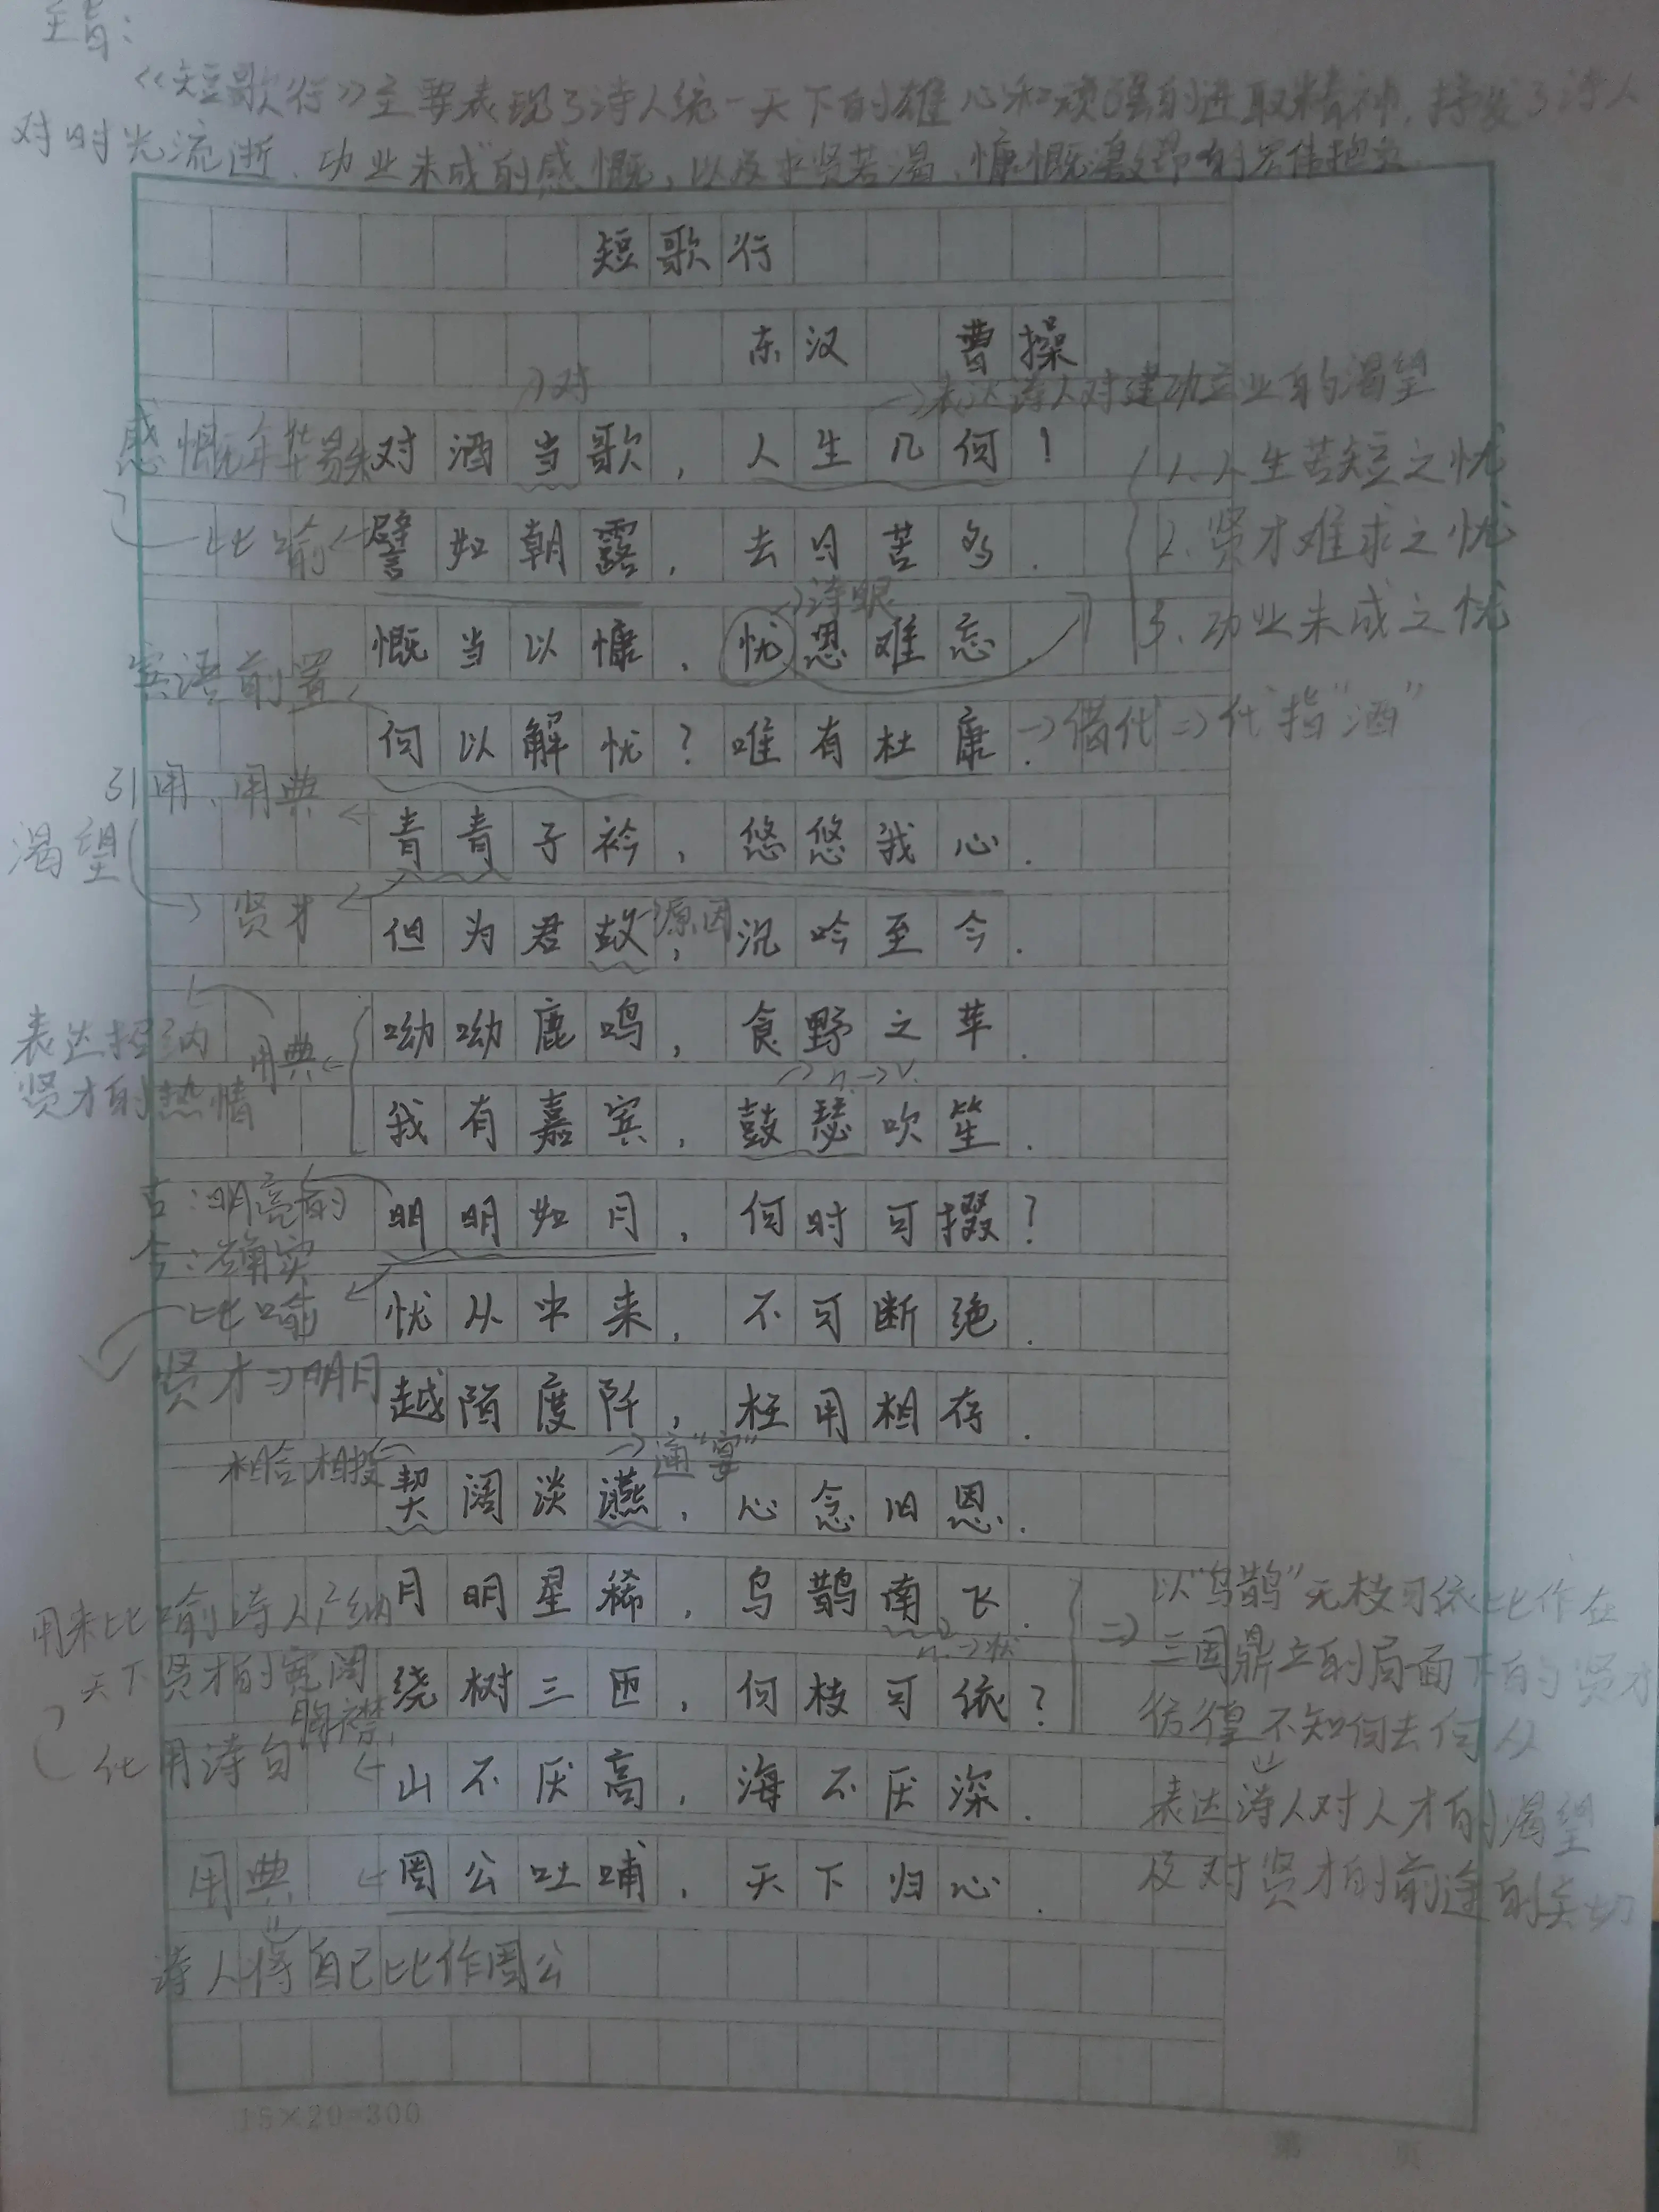 主旨：
《短歌行》主要表现了诗人统一天下的雄心和顽强的进取精神，抒发了诗人
对时光流逝、功业未成的感慨，以及求贤若渴、慷慨激昂的宏伟抱负
短歌行
东汉 曹操
→对
→表达诗人对建功立业的渴望
感慨年华易失
对酒当歌，人生几何！
1.人生苦短之忧
比喻
譬如朝露，去日苦多．
2.贤才难求之忧
→诗眼
慨当以慷，忧思难忘．
3.功业未成之忧
宾语前置
何以解忧？唯有杜康．
→借代⇒代指“酒”
引用、用典
青青子衿，悠悠我心．
渴望
贤才
但为君故，沉吟至今．
原因
呦呦鹿鸣，食野之苹．
表达招纳
贤才的热情
用典
→n.→v.
我有嘉宾，鼓瑟吹笙．
古：明亮的
今：确实
明明如月，何时可掇？
比喻
忧从中来，不可断绝．
贤才⇒明月
越陌度阡，枉用相存．
相合相投
→通“宴”
契阔谈讌，心念旧恩．
月明星稀，乌鹊南飞．
n.→状
绕树三匝，何枝可依？
以“乌鹊”无枝可依比作在
三国鼎立的局面下的贤才
彷徨不知何去何从
表达诗人对人才的渴望
及对贤才的前途的关切
用来比喻诗人广纳
天下贤才的宽阔
胸襟，
化用诗句
山不厌高，海不厌深．
用典
周公吐哺，天下归心．
诗人将自己比作周公
15×20=300
第 页